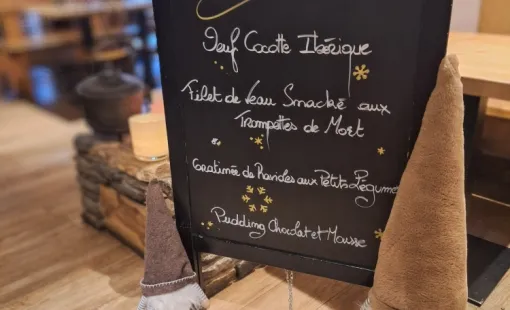 Oeuf Cocotte Ibérique
Filet de Veau Smacké aux
Trompettes de Mort
Gratinée de Ravioles aux Petits Légumes
Pudding Chocolat et Mousse